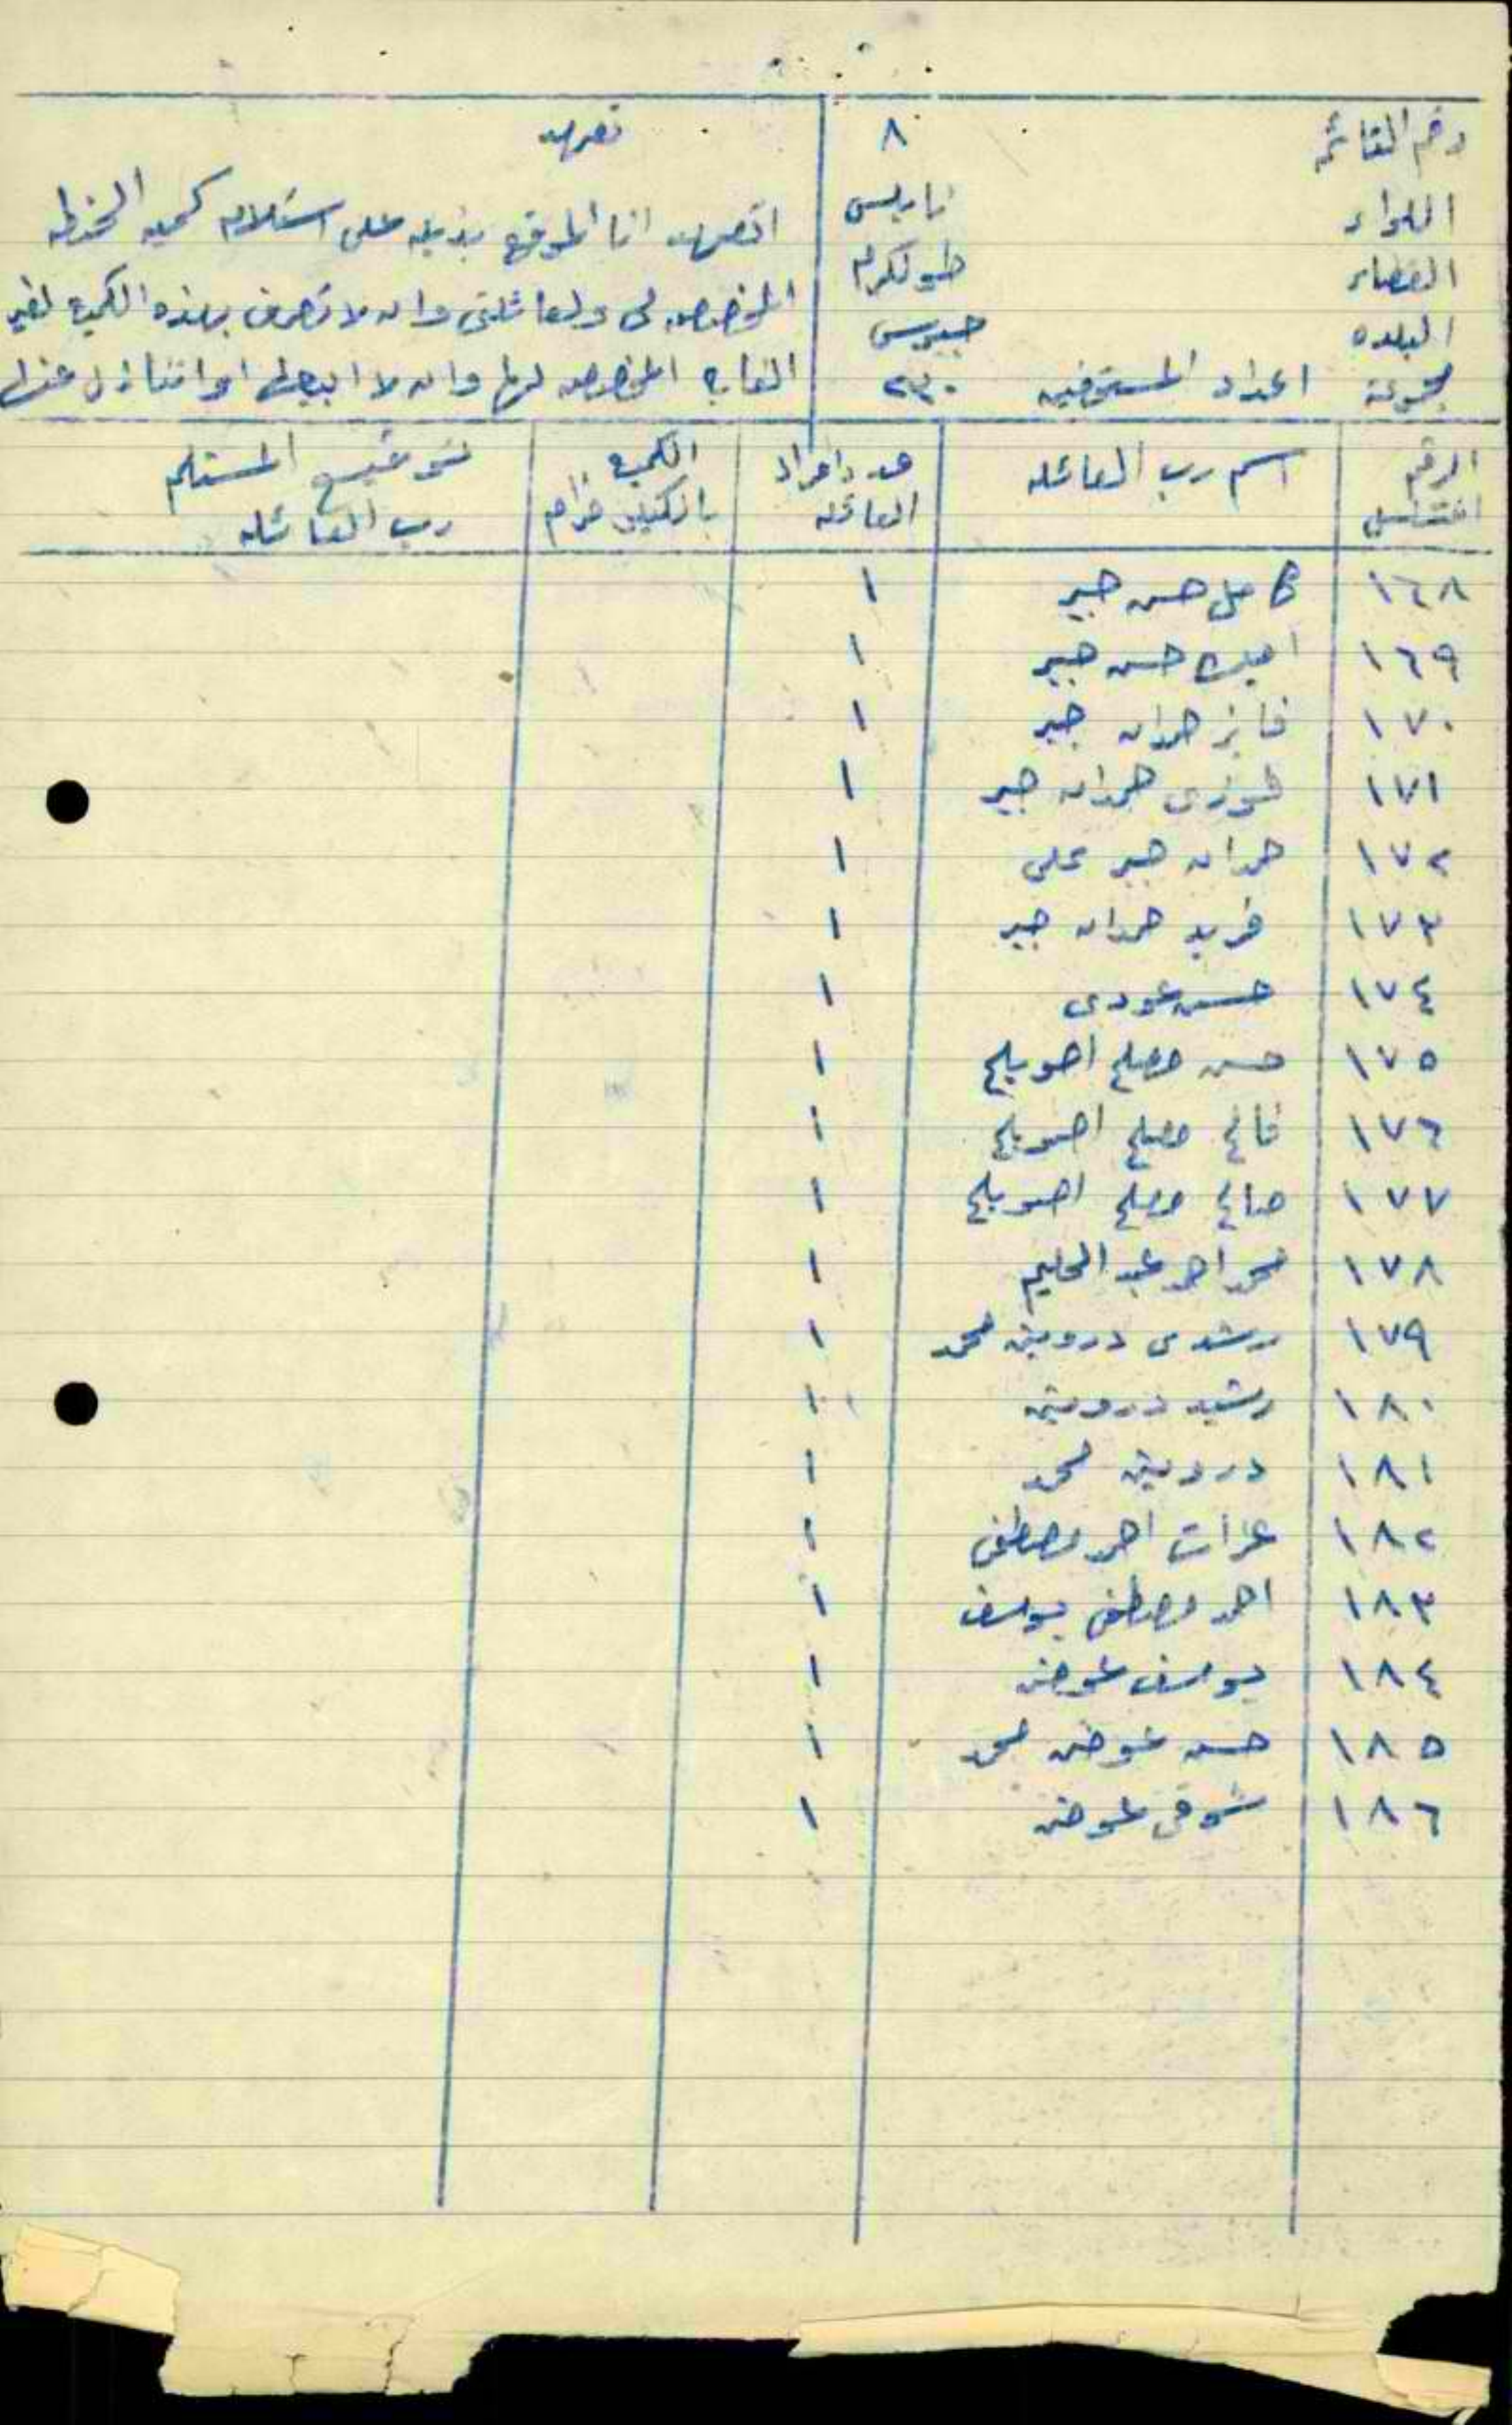 رقم القائمه ٨
اللواء نابلس
القضاء طولكرم
البلده جيوس
مجموعة اعداد المستحقين ٢٣٠
تعهد
اتعهد انا الموقع بذيله على استلام كمية الحنطه
المخصصه لي ولعائلتي وان لا تصرف بهذه الكميه لغير
الغايه المخصصه لها وان لا ابيعها او اتنازل عنها
الرقم المتسلسل | اسم رب العائله | عدد افراد العائله | الكميه بالكيلو غرام | توقيع المستلم رب العائله
١٦٨ كامل حسن جبر ١
١٦٩ حسن جبر ١
١٧٠ فايز حمدان جبر ١
١٧١ فوزي حمدان جبر ١
١٧٢ حمدان جبر علي ١
١٧٣ فريد حمدان جبر ١
١٧٤ حسن عودي ١
١٧٥ حسن مصلح اصويلح ١
١٧٦ فالح مصلح اصويلح ١
١٧٧ صالح مصلح اصويلح ١
١٧٨ محمد احمد عبد الحليم ١
١٧٩ رشدي درويش محمد ١
١٨٠ رشيد درويش ١
١٨١ درويش محمد ١
١٨٢ احمد مصطفى ١
١٨٣ احمد مصطفى يوسف ١
١٨٤ يوسف عوض ١
١٨٥ حسن عوض محمد ١
١٨٦ شوقي عوض ١